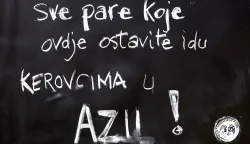 Sve pare koje
ovdje ostavite idu
KEROVCIMA U
AZIL!